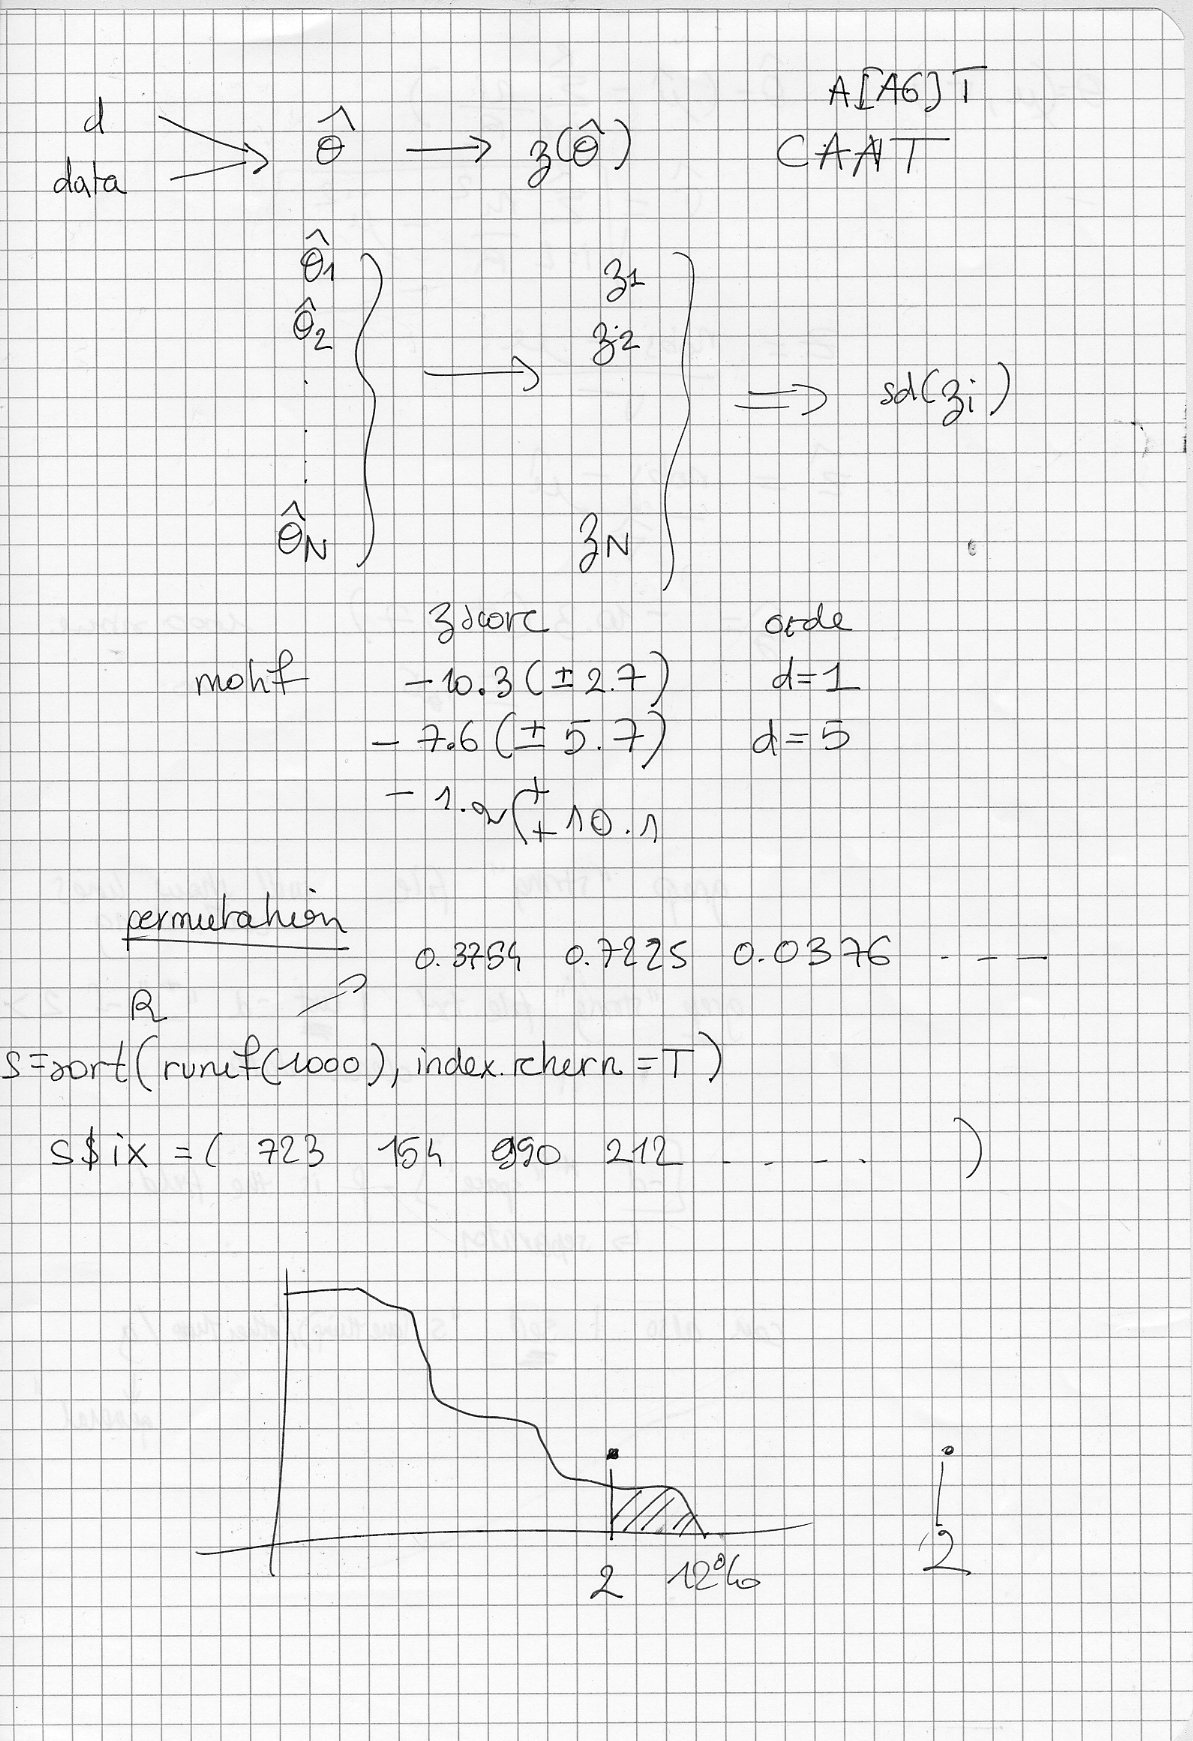 A[AG]T
d
data
θ̂ → z(θ̂)
CAAT
θ̂1
z1
θ̂2
z2
⇒ sd(zi)
θ̂N
zN
zscore orde
motif -10.3 (± 2.7) d=1
- 7.6 (± 5.7) d=5
- 1.2 (± 10.1
permutation
0.3754 0.7225 0.0376 ----
R
s=sort(runif(1000), index.return=T)
s$ix = ( 723 154 990 212 ..... )
2 12%
2